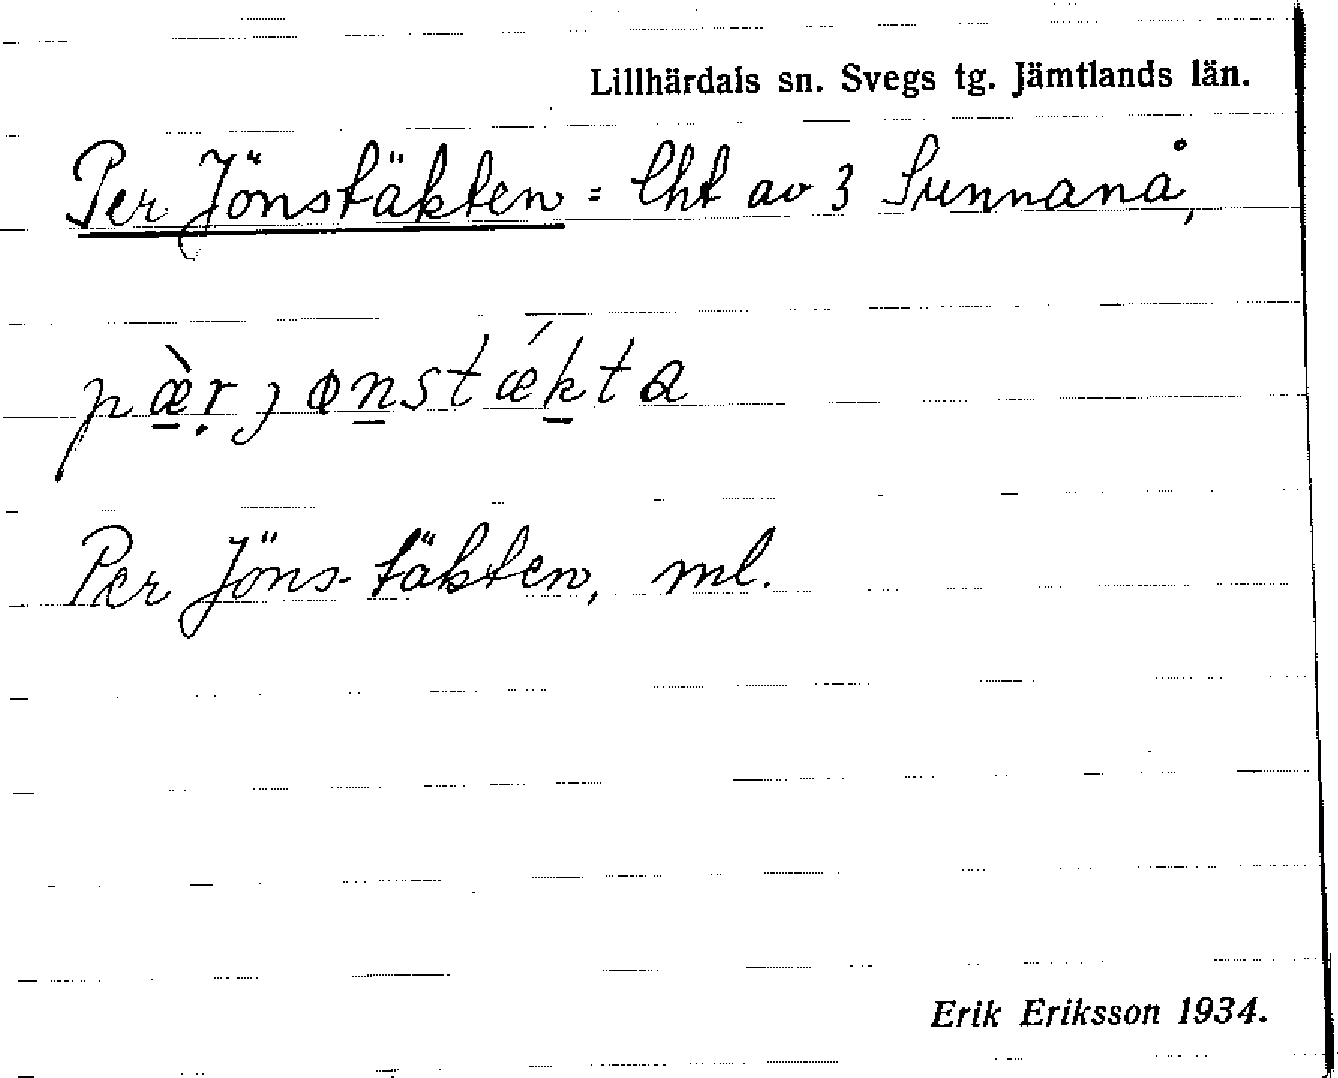 Lillhärdals sn. Svegs tg. Jämtlands län.
Per Jönstäkten = lht av 3 Sunnanå,
pæ̀ṛȷønstǽkta
Per Jöns-täkten, ml.
Erik Eriksson 1934.